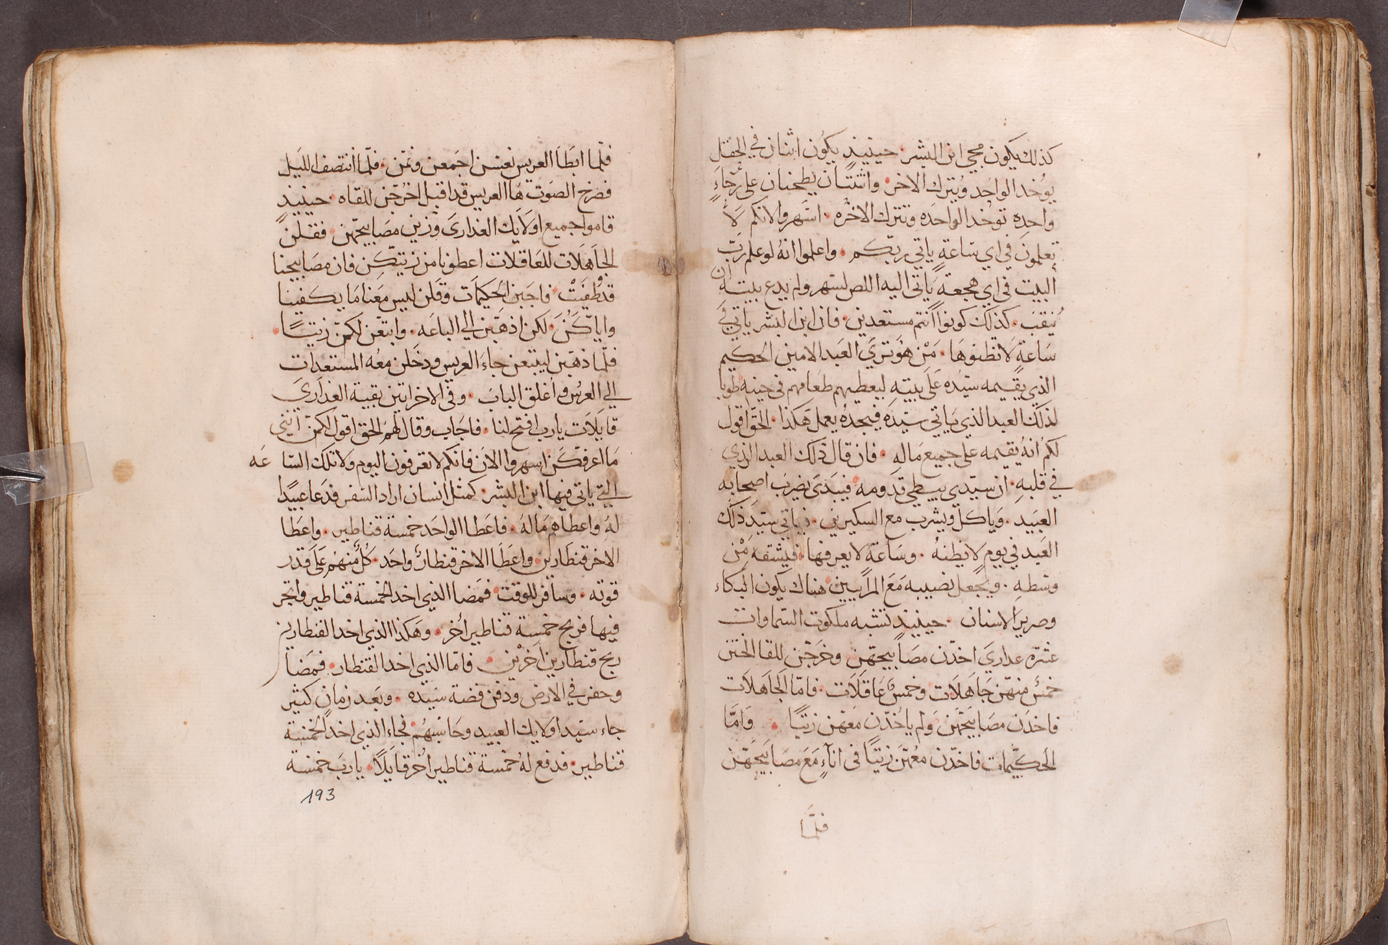 كذلك يكون مجي ابن البشر • حينيذ يكون اثنان في الحقل
يوخد الواحد ويترك الاخر • واثنتان يطحنان على رحاء
واحدة توخد الواحدة وتترك الاخره • اسهروا لانكم لا
تعلمون في اي ساعة ياتي ربكم • واعلموا انه لو علم رب
البيت في اي هجعة ياتي اليه اللص لسهر ولم يدع بيته ان
ينقب • كذلك كونوا انتم مستعدين • فان ابن البشر ياتي في
ساعة لا تظنوها • من هو ترى العبد الامين الحكيم
الذي يقيمه سيده على بيته ليعطيهم طعامهم في حينه طوبا
لذلك العبد الذي ياتي سيده فيجده يعمل هكذا • الحق اقول
لكم انه يقيمه على جميع ماله • فان قال ذلك العبد الذي
في قلبه • ان سيدي يبطي قدومه • فيبدى يضرب اصحابه
العبيد • وياكل ويشرب مع السكيرين • فياتي سيد ذلك
العبد في يوم لا يظنه • وساعة لا يعرفها • فيشقه من
وسطه • ويجعل نصيبه مع المرايين • هناك يكون البكاء
وصرير الاسنان • حينيذ تشبه ملكوت السماوات
عشرة عدارى اخدن مصابيحهن وخرجن للقا الختن
خمس منهن جاهلات وخمس عاقلات • فاما الجاهلات
فاخدن مصابيحهن ولم ياخدن معهن زيتا • واما
الحكيمات فاخدن معهن زيتا في اناء مع مصابيحهن
فلما
فلما ابطا العريس نعسن اجمعن ونمن • فلما انتصف الليل
فصرخ الصوت ها العريس قد اقبل اخرجن للقاه • حينيذ
قاموا جميع اولايك العدارى وزين مصابيحهن • فقلن
الجاهلات للعاقلات اعطونا من زيتكن فان مصابيحنا
قد طفت • واجبن الحكيمات وقلن ليس معنا ما يكفينا
واياكن • لكن ادهبن الي الباعه • وابتعن لكن زيتا •
فلما دهبن ليبتعن جاء العريس ودخلن معه المستعدات
الي العرس واغلق الباب • وفي الاخر اتين بقية العدارى
قايلات يارب افتح لنا • فاجاب وقال لهم الحق اقول لكن انني
ما اعرفكن اسهروا الان فانكم لا تعرفون اليوم ولا تلك الساعه
التي ياتي فيها ابن البشر • كمثل انسان اراد السفر فدعا عبيدا
له واعطاهم ماله • فاعطا الواحد خمسة قناطير • واعطا
الاخر قنطارين • واعطا الاخر قنطار واحد • كل منهم على قدر
قوته • وسافر للوقت • فمضا الذي اخد الخمسة قناطير واتجر
فيها فربح خمسة قناطير اخر • وهكذا الذي اخد القنطارين
ربح قنطارين اخرين • فاما الذي اخد القنطار • فمضا
وحفر في الارض ودفن فضة سيده • وبعد زمان كثير
جاء سيد اولايك العبيد وحاسبهم • فجاء الذي اخد الخمسة
قناطير • فدفع له خمسة قناطير اخر قايلا • يارب خمسة
193